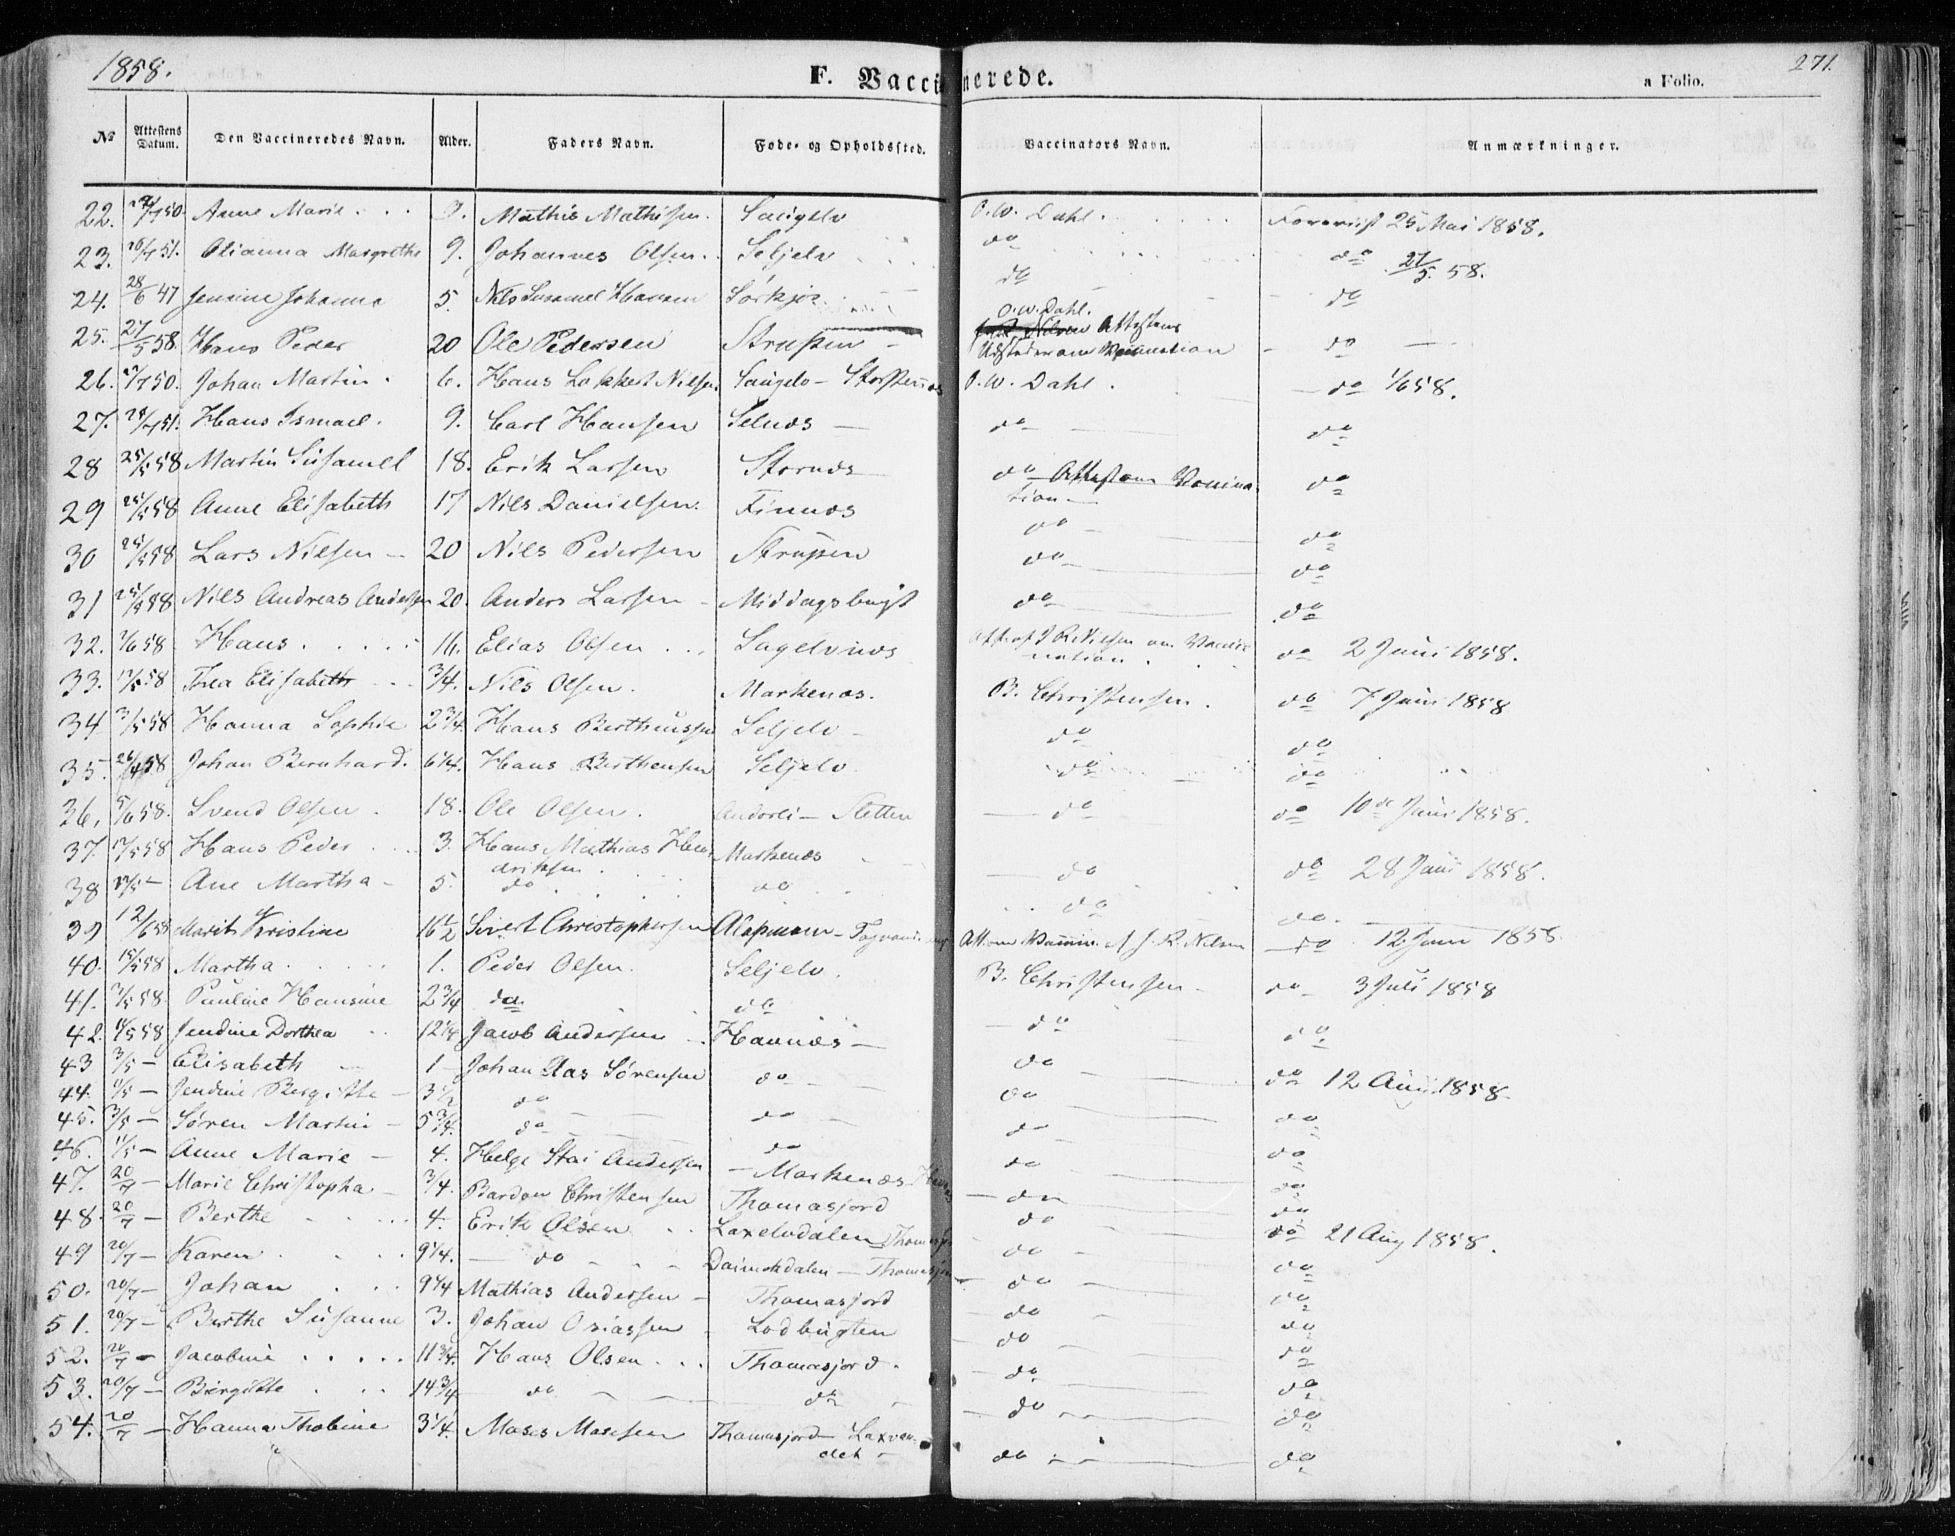 1858.
F. Vaccinerede.
271.
a Folio.
№ Attestens Datum. Den Vaccineredes Navn. Alder. Faders Navn. Føde- og Opholdssted. Vaccinators Navn. Anmærkninger.
22. Anne Marie . . . 9. Mathis Mathisen. Saugelv O. W. Dahl. Foreviist 25 Mai 1858.
23. 26/7 51. Olianna Margrethe 9. Johannes Olsen. Seljelv do do 27/5 58.
24. 28/6 47 Jensine Johanna 5. Nils Susamel Hansen Sørkjos do do
25. 27/5 58 Hans Peder 20 Ole Pedersen Strupen O. W. Dahl. Attestens Udsteder om Vaccination do
26. 27/7 50. Johan Martin. 6. Hans Lokkert Nilsen Saugelv - Storstennæs O. W. Dahl. do 1/6 58.
27. 28/7 51. Hans Ismael. 9. Carl Hansen Selnæs do do
28 25/5 58 Martin Susamel 18. Erik Larsen Stornæs do Attest om Vaccination do
29 25/5 58 Anne Elisabeth 17 Nils Danielsen. Finnæs do do
30 25/5 58 Lars Nilsen 20 Nils Pedersen Strupen do do
31 25/5 58 Nils Andreas Andersen 20. Anders Larsen Middagsbugt do do
32. 2/6 58 Hans . . . . 16. Elias Olsen . . Sagelvnæs Att. af J. R. Nilsen om Vaccination. do 2 Juni 1858.
33. 17/5 58 Thea Elisabeth 3/4. Nils Olsen. Markenæs. B. Christensen. do 7 Juni 1858
34 3/5 58 Hanna Sophie 2 3/4. Hans Bertheussen Seljelv do do
35. 26/4 58 Johan Bernhard. 6 1/4. Hans Bertheusen Seljelv do do
36. 5/6 58. Svend Olsen. 18. Ole Olsen. Andorli - Sletten do do 10de Juni 1858.
37. 17/5 58 Hans Peder 3. Hans Mathias Hendriksen Markenæs do do 28 Juni 1858.
38 17/5 - Ane Martha 5. do do do do
39 12/6 58 Marit Kristine 16 1/2 Sivert Christophersen Alapmoen - Att. om Vaccin. af J. R. Nilsen do 12 Juni 1858
40. 15/5 58 Martha . . . . 1. Peder Olsen. Seljelv. B. Christensen do 3 Juli 1858
41. 3/5 58. Pauline Hansine 2 3/4 do do do do
42. 58 Jendine Dorthea 12 1/4 Jacob Andersen Havnæs do do 12 Aug. 1858.
43 3/5 - Elisabeth 1 Johan Aas Sørensen do do do
44. 11/5 - Jendine Bergitte 3 1/2 do do do do
45. 3/5 - Søren Martin 5 3/4. do do do do
46. 11/5 - Anne Marie 4. Helge Stai Andersen - Markenæs do do
47. 20/7 - Marie Christopha 3/4. Bardon Christensen Thomasjord do do 21 Aug 1858.
48. 20/7 - Berthe 4. Erik Olsen Laxelvdalen Thomasjord do do
49 20/7 - Karen 9 1/4. do Daimokdalen - Thomasjord do do
50. 20/7 - Johan 9 1/4 Mathias Andersen Thomasjord do do
51. 20/7 - Berthe Susanne 3. Johan Oviassen Lodbugten do do
52. 20/7 - Jacobine . . . . 11 3/4. Hans Olsen . . Thomasjord. do do
53. 20/7 - Bergitte 14 3/4 do do do do
54. 20/7 - Hanna Thobine 3 1/4. Moses Mosesen Thomasjord - Laxvandet do do